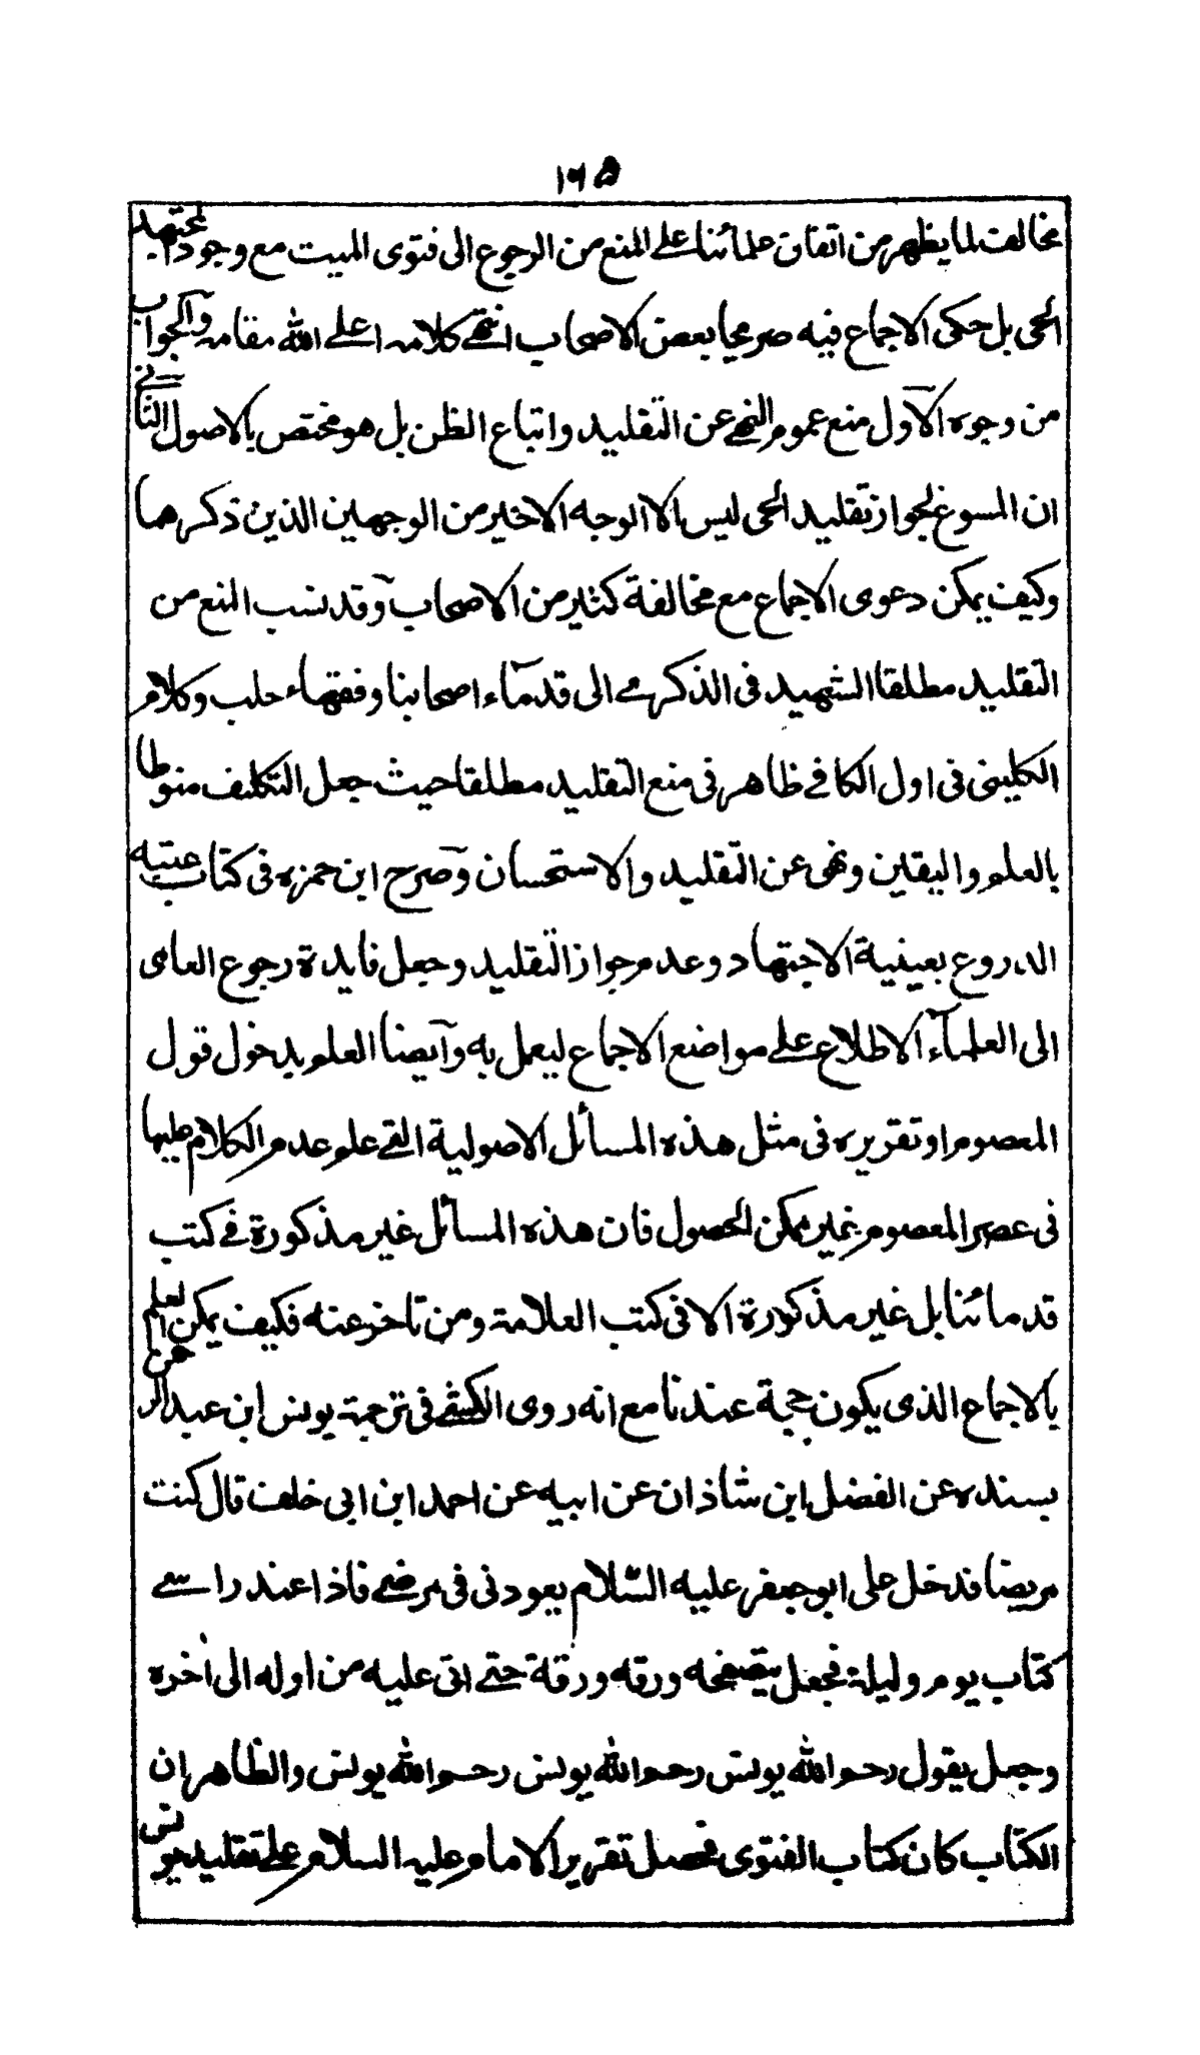 ١٦٥
مخالف لما يظهر من اتفاق علمائنا على المنع من الرجوع الى فتوى الميت مع وجود المجتهد
الحى بل حكى الاجماع فيه صريحا بعض الاصحاب انتهى كلامه اعلى الله مقامه والجواب
من وجوه الآول منع عموم النهى عن التقليد واتباع الظن بل هو مختص بالاصول الثانى
ان المسوغ لجواز تقليد الحى ليس الا الوجه الاخير من الوجهين الذين ذكرهما
وكيف يمكن دعوى الاجماع مع مخالفة كثير من الاصحاب وقد نسب المنع من
التقليد مطلقا الشهيد فى الذكرى الى قدمآء اصحابنا وفقهاء حلب وكلام
الكلينى فى اول الكافى ظاهر فى منع التقليد مطلقا حيث جعل التكليف منوطا
بالعلم واليقين ونهى عن التقليد والاستحسان وصرح ابن حمزه فى كتاب غنيه
الدروع بعينية الاجتهاد وعدم جواز التقليد وجعل فايدة رجوع العامى
الى العلمآء الاطلاع على مواضع الاجماع ليعمل به وآيضا العلم بدخول قول
المعصوم او تقريره فى مثل هذه المسائل الاصولية التى علم عدم الكلام عليها
فى عصر المعصوم غير ممكن الحصول فان هذه المسائل غير مذكورة فى كتب
قدمائنا بل غير مذكورة الا فى كتب العلامة ومن تاخر عنه فكيف يمكن العلم
بالاجماع الذى يكون حجة عندنا مع انه روى الكشى فى ترجمة يونس ابن عبد الرحمن
بسنده عن الفضل ابن شاذان عن ابيه عن احمد ابن ابى خلف قال كنت
مريضا فدخل على ابو جعفر عليه السّلام يعودنى فى مرضى فاذا عند راسى
كتاب يوم وليلة فجعل يتصفحه ورقه ورقة حتى اتى عليه من اوله الى اخره
وجعل يقول رحم الله يونس رحم الله يونس رحم الله يونس والظاهر ان
الكتاب كان كتاب الفتوى فحصل تقرير الامام عليه السلام على تقليد يونس